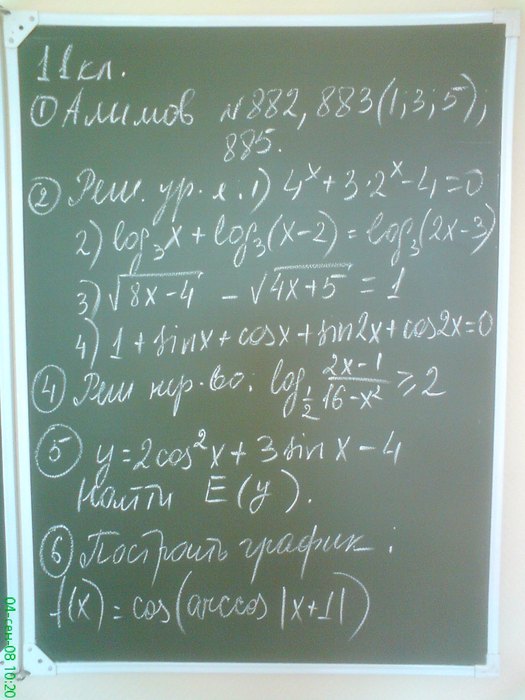 11кл.
① Алимов №882, 883(1; 3; 5);
885.
② Реш. ур-я. 1) 4ˣ+3·2ˣ-4=0
2) log₃x + log₃(x-2) = log₃(2x-3)
3) √(8x-4) - √(4x+5) = 1
4) 1+sinx+cosx+sin2x+cos2x=0
④ Реш нер-во: log_{1/2} (2x-1)/(16-x²) ≥ 2
⑤ y=2cos²x+3sinx-4
Найти E(y).
⑥ Построить график:
f(x)=cos(arccos|x+1|)
04-сен-08 10:20